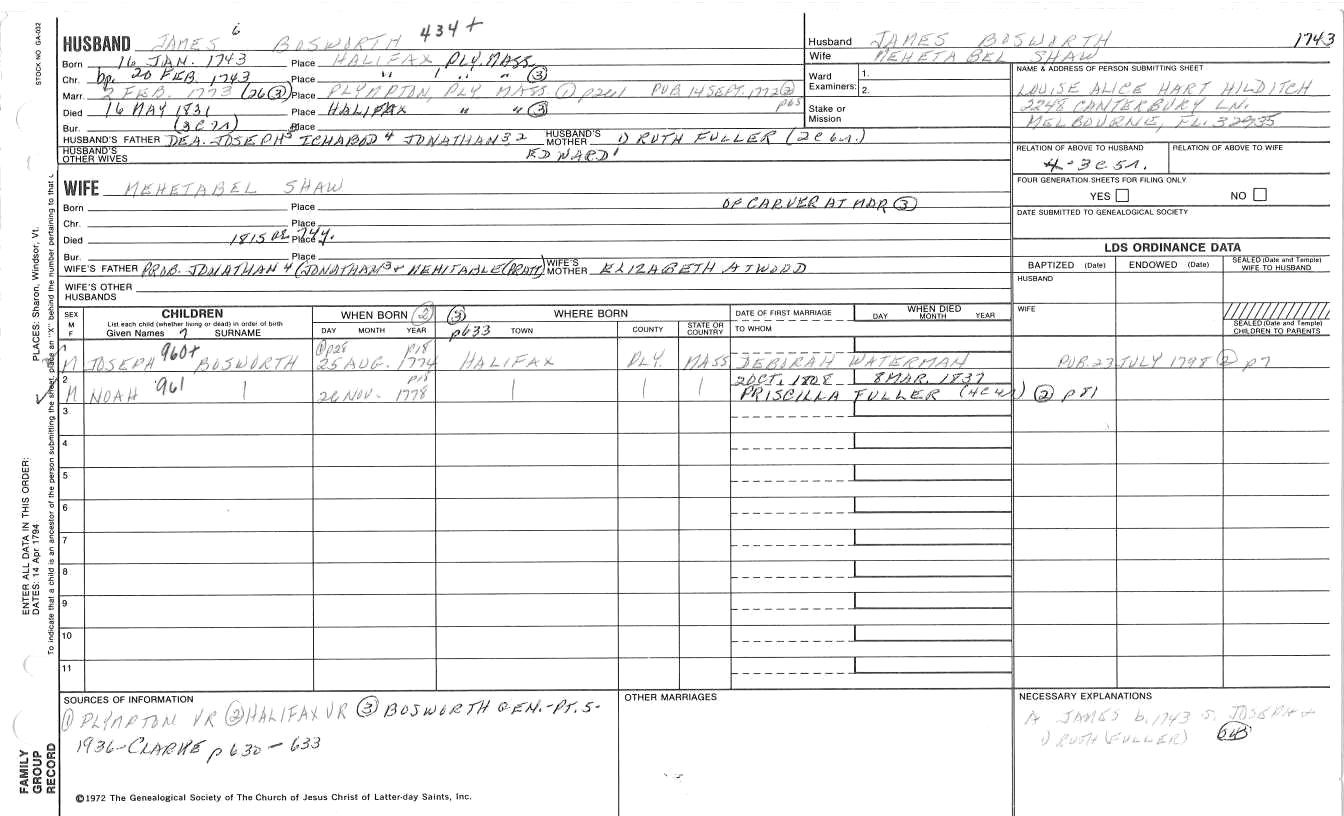 STOCK NO GA-032
HUSBAND JAMES 6 BOSWORTH 434+
Born 16 JAN. 1743 Place HALIFAX, PLY. MASS.
Chr. bp. 20 FEB. 1743 Place " " " ③
Marr. 2 FEB. 1773 (26③) Place PLYMPTON, PLY MASS ① p261 PUB 14 SEPT. 1772 ② p65
Died 16 MAY 1831 Place HALIFAX " " ③
Bur. Place
HUSBAND'S FATHER DEA. JOSEPH⁵ ICHABOD⁴ JONATHAN³ ² HUSBAND'S MOTHER 1) RUTH FULLER
HUSBAND'S OTHER WIVES EDWARD¹
WIFE MEHETABEL SHAW
Born Place OF CARVER AT MAR ③
Chr. Place
Died 1815 Place
Bur. Place
WIFE'S FATHER PROB. JONATHAN 4 (JONATHAN³ + MEHITABLE (PRATT) WIFE'S MOTHER ELIZABETH ATWOOD
WIFE'S OTHER HUSBANDS
Husband JAMES BOSWORTH 1743
Wife MEHETABEL SHAW
Ward Examiners: 1. 2.
Stake or Mission
NAME & ADDRESS OF PERSON SUBMITTING SHEET
LOUISE ALICE HART HILDITCH
2248 CANTERBURY LN.
MELBOURNE, FL. 32935
RELATION OF ABOVE TO HUSBAND RELATION OF ABOVE TO WIFE
FOUR GENERATION SHEETS FOR FILING ONLY
YES NO
DATE SUBMITTED TO GENEALOGICAL SOCIETY
LDS ORDINANCE DATA
BAPTIZED (Date) ENDOWED (Date) SEALED (Date and Temple) WIFE TO HUSBAND
HUSBAND
WIFE
SEALED (Date and Temple) CHILDREN TO PARENTS
SEX M F CHILDREN List each child (whether living or dead) in order of birth Given Names 7 SURNAME
WHEN BORN ② DAY MONTH YEAR
③ p633 WHERE BORN TOWN COUNTY STATE OR COUNTRY
DATE OF FIRST MARRIAGE TO WHOM
WHEN DIED DAY MONTH YEAR
1 M JOSEPH 960+ BOSWORTH ① p28 p18 25 AUG. 1774 HALIFAX PLY. MASS DEBORAH WATERMAN PUB. 23 JULY 1798 ② p7
2 M NOAH 961 p18 26 NOV. 1778 2 OCT. 1808 8 MAR. 1837
PRISCILLA FULLER ② p81
3
4
5
6
7
8
9
10
11
SOURCES OF INFORMATION
① PLYMPTON VR ② HALIFAX VR ③ BOSWORTH GEN.-PT. 5-
1936-CLARKE p 630-633
OTHER MARRIAGES
NECESSARY EXPLANATIONS
A JAMES b. 1743 S. JOSEPH +
1) RUTH (FULLER)
©1972 The Genealogical Society of The Church of Jesus Christ of Latter-day Saints, Inc.
PLACES: Sharon, Windsor, Vt.
ENTER ALL DATA IN THIS ORDER:
DATES: 14 Apr 1794
To indicate that a child is an ancestor of the person submitting the sheet, place an "X" behind the number pertaining to that
FAMILY
GROUP
RECORD